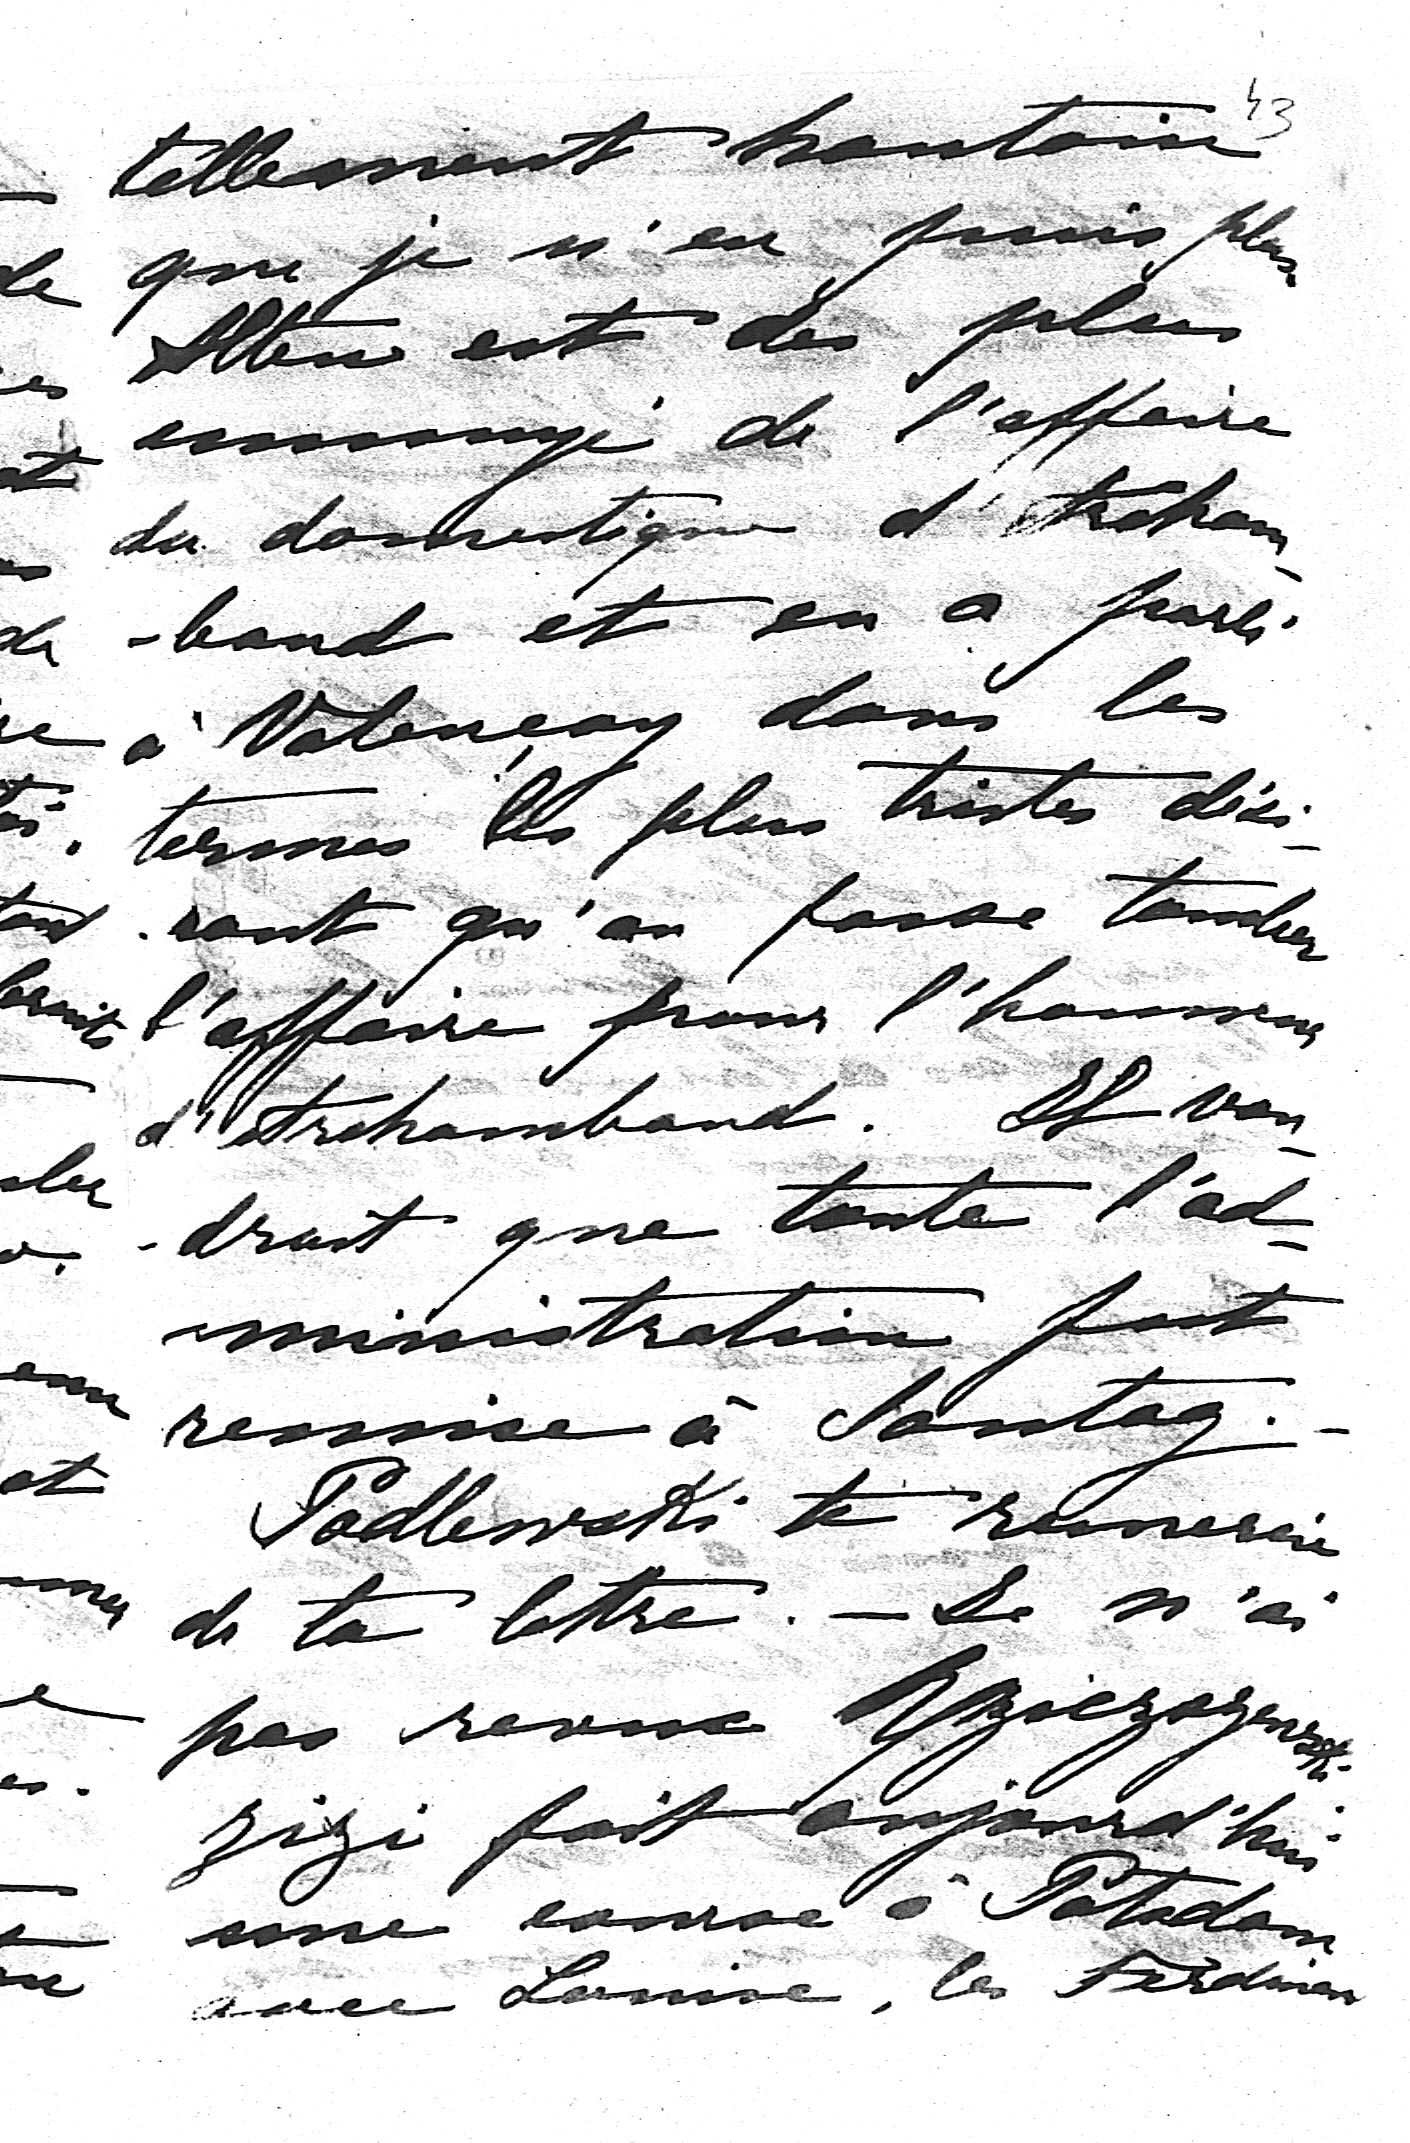 43
tellement hautain
que je n'en puis plus.
Alten est des plus
ennuyé de l'affaire
du domestique d'Strcham-
-band et en a parlé
à Valençay dans les
termes les plus tristes dési-
-rant qu'on fasse tomber
l'affaire pour l'honneur
d'Strchamband. Il vou-
-drait que toute l'ad-
ministration fut
remise à Sontag. -
Podlewski te remercie
de ta lettre. - Je n'ai
pas revue
Zizi fait aujourd'hui
une course à Potsdam
avec Louise, les Ferdinan